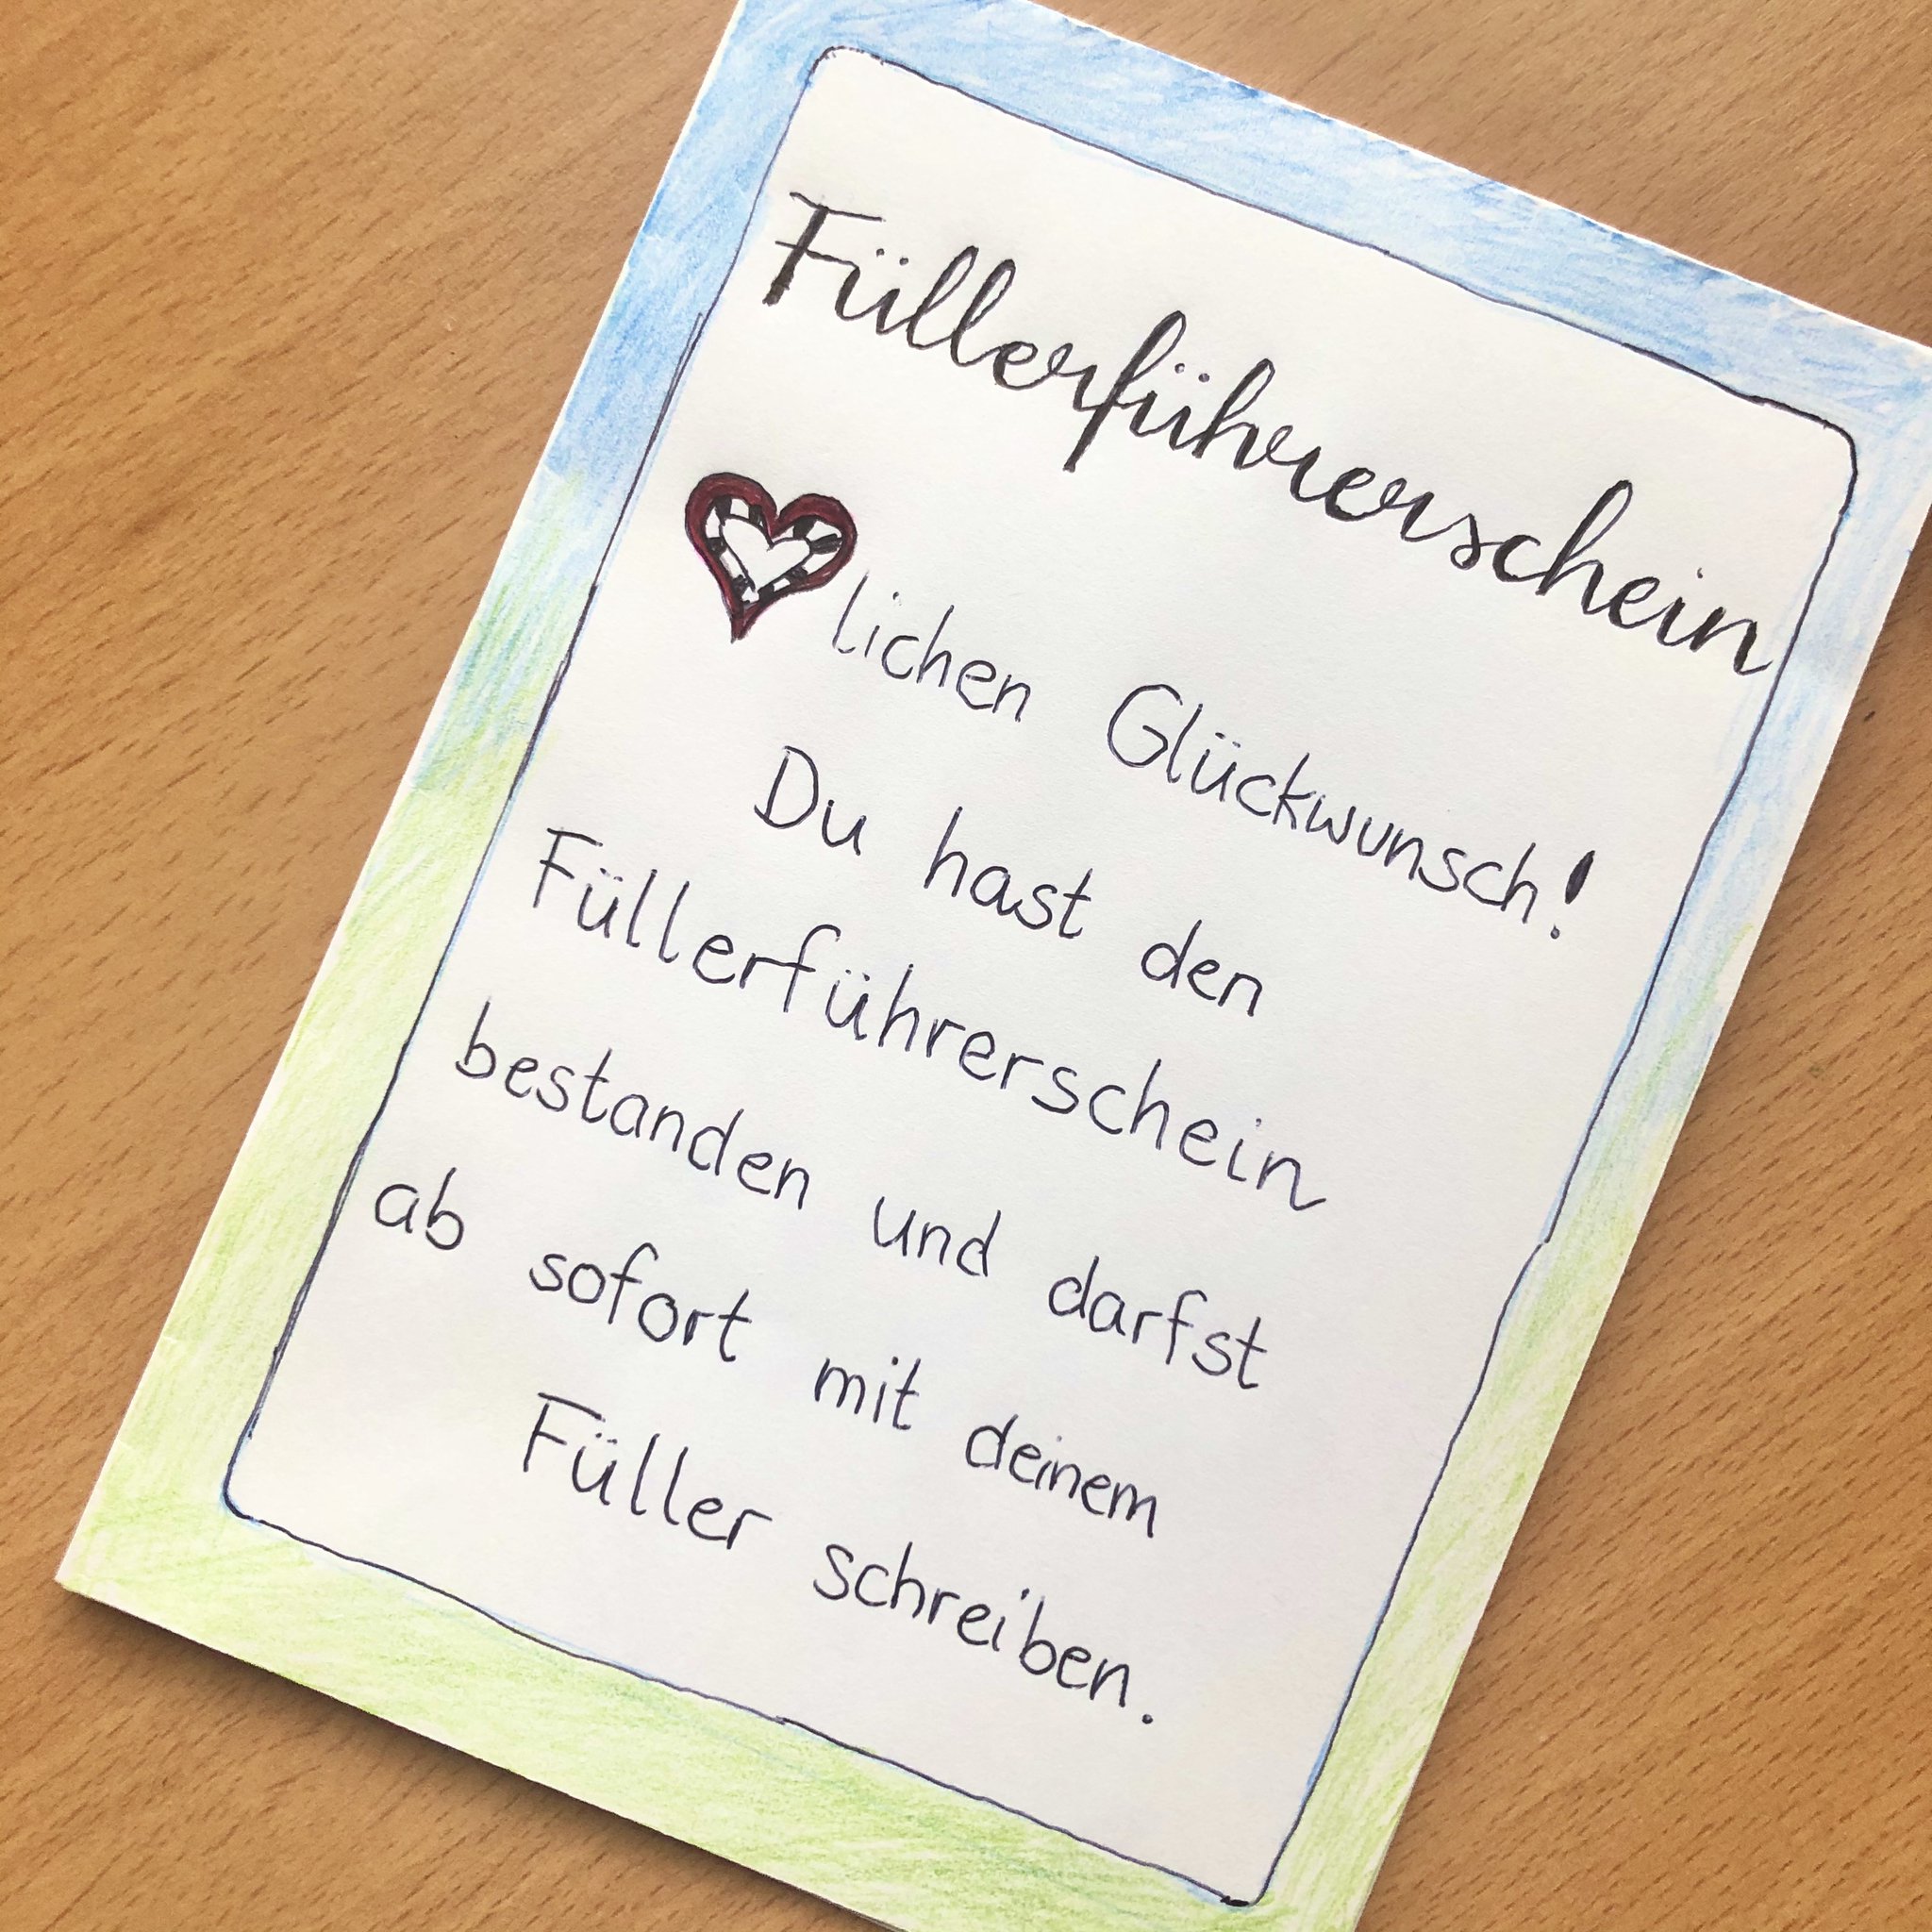 Füllerführerschein
lichen Glückwunsch!
Du hast den
Füllerführerschein
bestanden und darfst
ab sofort mit deinem
Füller schreiben.